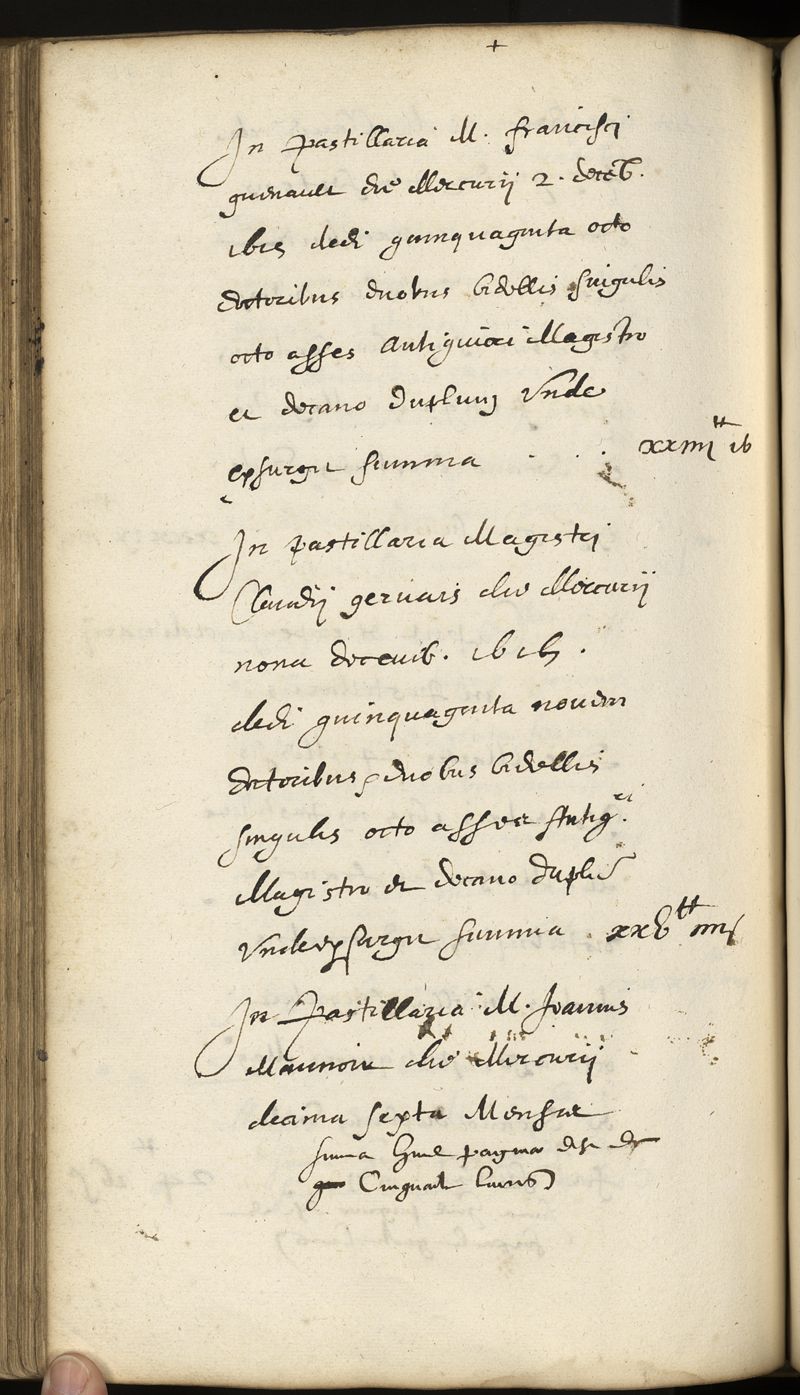 +
In pastillaria M. francisci
guenault die Mercurii 2. decēb.
dedi quinquaginta octo
doctoribus duobus bidellis singulis
octo asses Antiquiori Magistro
et decano duplum vnde
exsurgit summa . . . xxiiii tt ib
In pastillaria Magistri
Claudii geruais die Mercurii
nona decemb.
dedi quinquaginta nouem
doctoribus, duobus bidellis
singulis octo asses Antiq.ri
Magistro et decano
vnde exsurgit summa . xxv tt iiii s
In Pastillaria M. Joannis
die Mercurii
decima sexta Mense
summa pagina est de
Cinquante liures